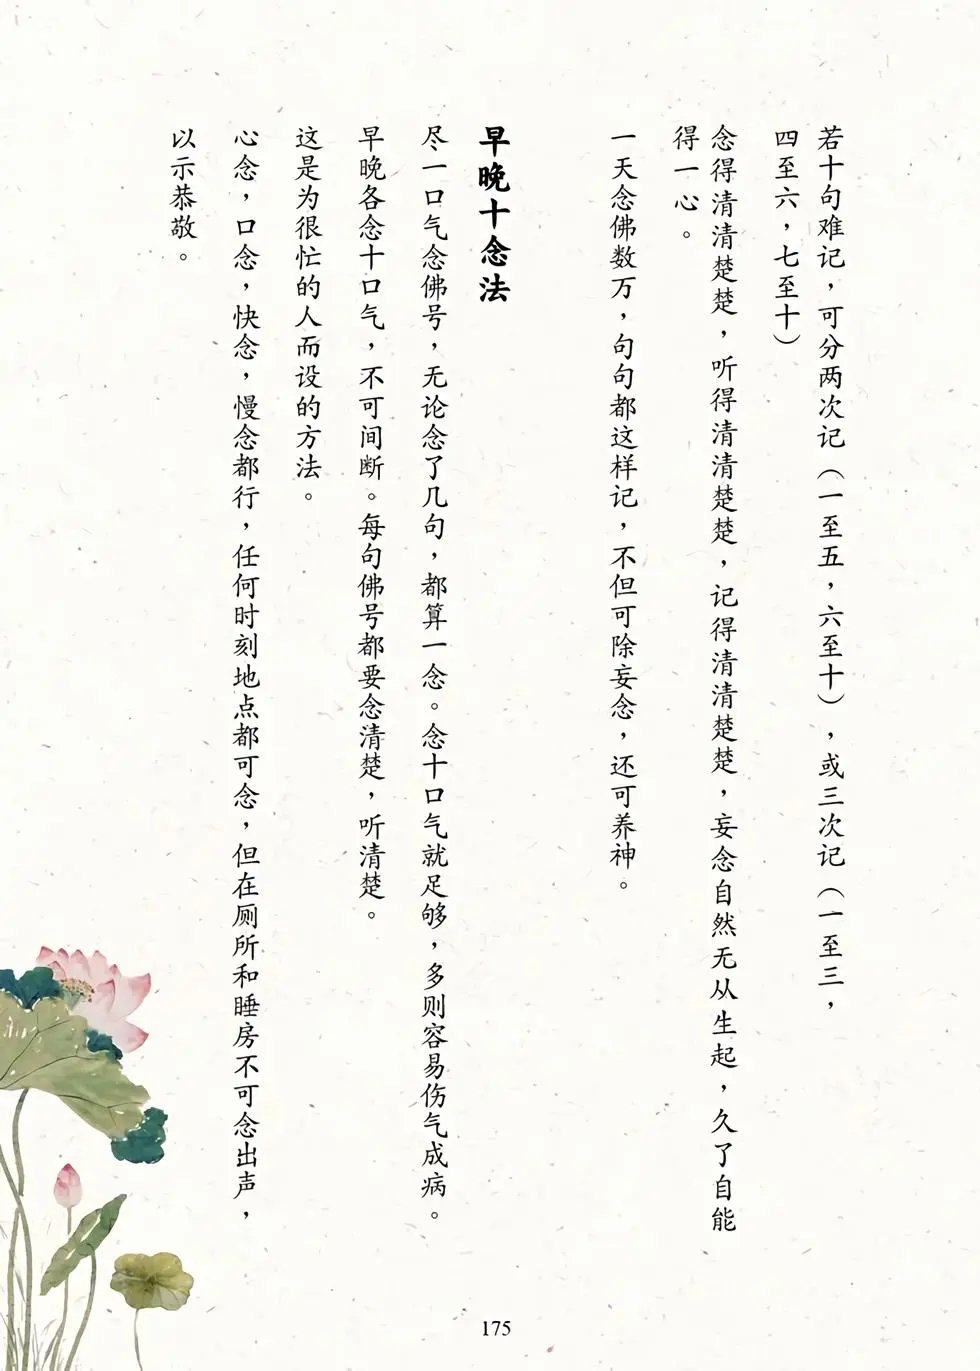 若十句难记，可分两次记（一至五，六至十），或三次记（一至三，
四至六，七至十）
念得清清楚楚，听得清清楚楚，记得清清楚楚，妄念自然无从生起，久了自能
得一心。
一天念佛数万，句句都这样记，不但可除妄念，还可养神。
早晚十念法
尽一口气念佛号，无论念了几句，都算一念。念十口气就足够，多则容易伤气成病。
早晚各念十口气，不可间断。每句佛号都要念清楚，听清楚。
这是为很忙的人而设的方法。
心念，口念，快念，慢念都行，任何时刻地点都可念，但在厕所和睡房不可念出声，
以示恭敬。
175